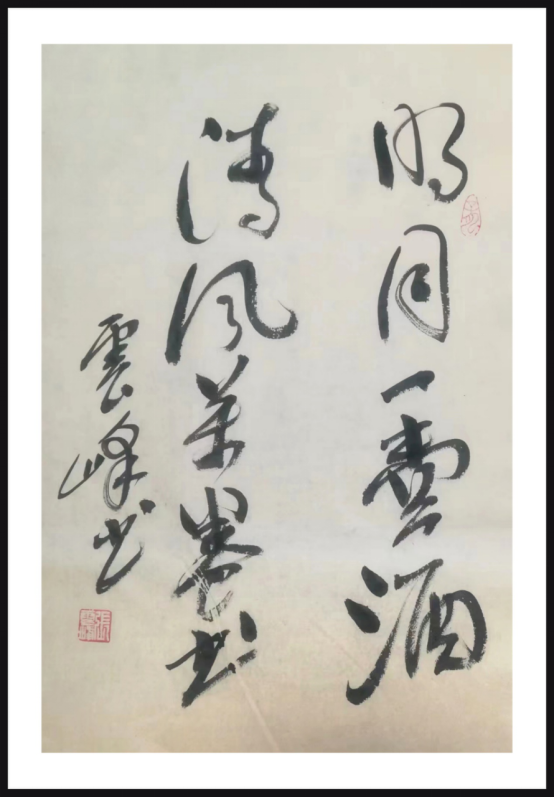 明月一壺酒
清風萬卷書
雲峰書